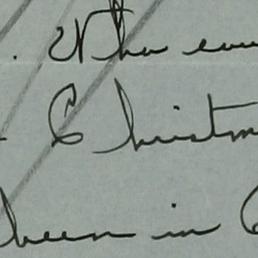 . Who cou
Christm
been in C